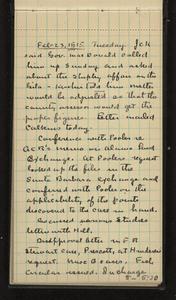 Feb-23, 1915 Tuesday JCK
said Gov. MacDonald called
him up Sunday and asked
about the Shipley affair on the
Gila - Kerbis told him matter
would be adjusted as that the
county assessor would get the
proper figures. Letter mailed
Calkins today.
Conference with Pooler re
ACR's memo on Alamo Land
Exchange. At Pooler's request
looked up the files in the
Santa Barbara exchange and
conferred with Pooler on the
applicability of the points
discovered to the case in hand.
Discussed various studies
letters with Hall.
Disapproval letter re F.R.
Stewart case, Prescott, at
request. Misc. cases. Fish
circular issued. In charge
5:30